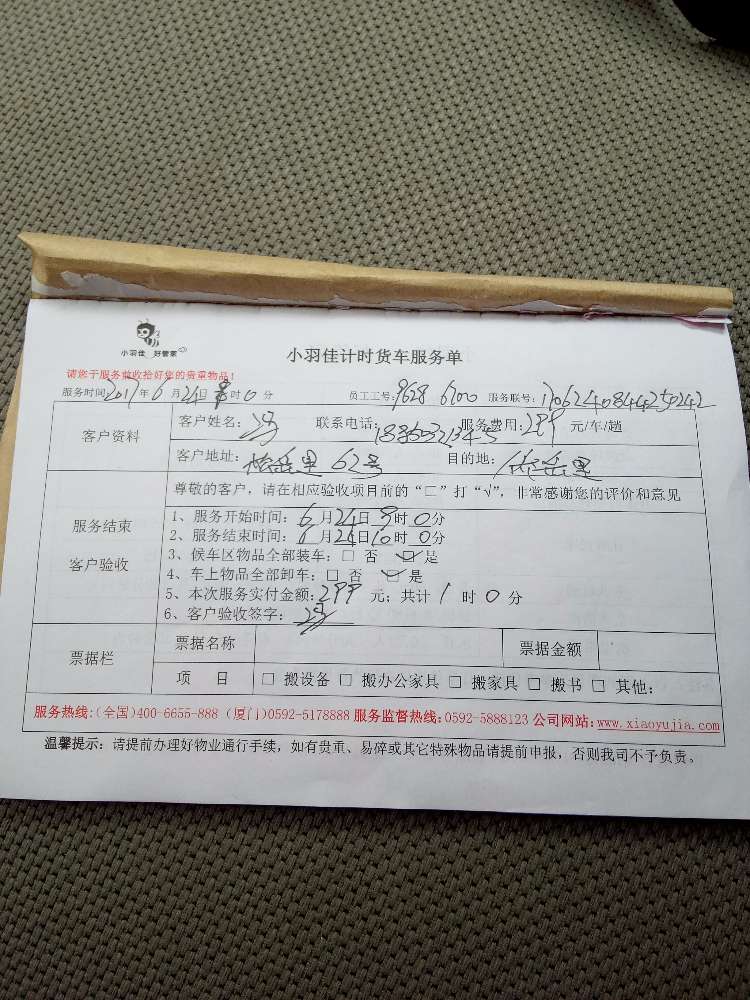 小羽佳 好管家
小羽佳计时货车服务单
请您于服务前收拾好您的贵重物品！
服务时间：2017年6月24日8时0分 员工工号：9628 6200 服务联号：
客户资料
客户姓名：冯 联系电话： 服务费用：299 元/车/趟
客户地址： 里 62号 目的地： 岳里
尊敬的客户，请在相应验收项目前的“□”打“√”，非常感谢您的评价和意见
服务结束
客户验收
1、服务开始时间：6月24日9时0分
2、服务结束时间：6月24日10时0分
3、候车区物品全部装车：□ 否 ☑ 是
4、车上物品全部卸车：□ 否 ☑ 是
5、本次服务实付金额：299 元；共计 1 时 0 分
6、客户验收签字：冯
票据栏
票据名称 票据金额
项 目 □ 搬设备 □ 搬办公家具 □ 搬家具 □ 搬书 □ 其他：
服务热线：(全国)400-6655-888 (厦门)0592-5178888 服务监督热线：0592-5888123 公司网站：www.xiaoyujia.com
温馨提示：请提前办理好物业通行手续，如有贵重、易碎或其它特殊物品请提前申报，否则我司不予负责。